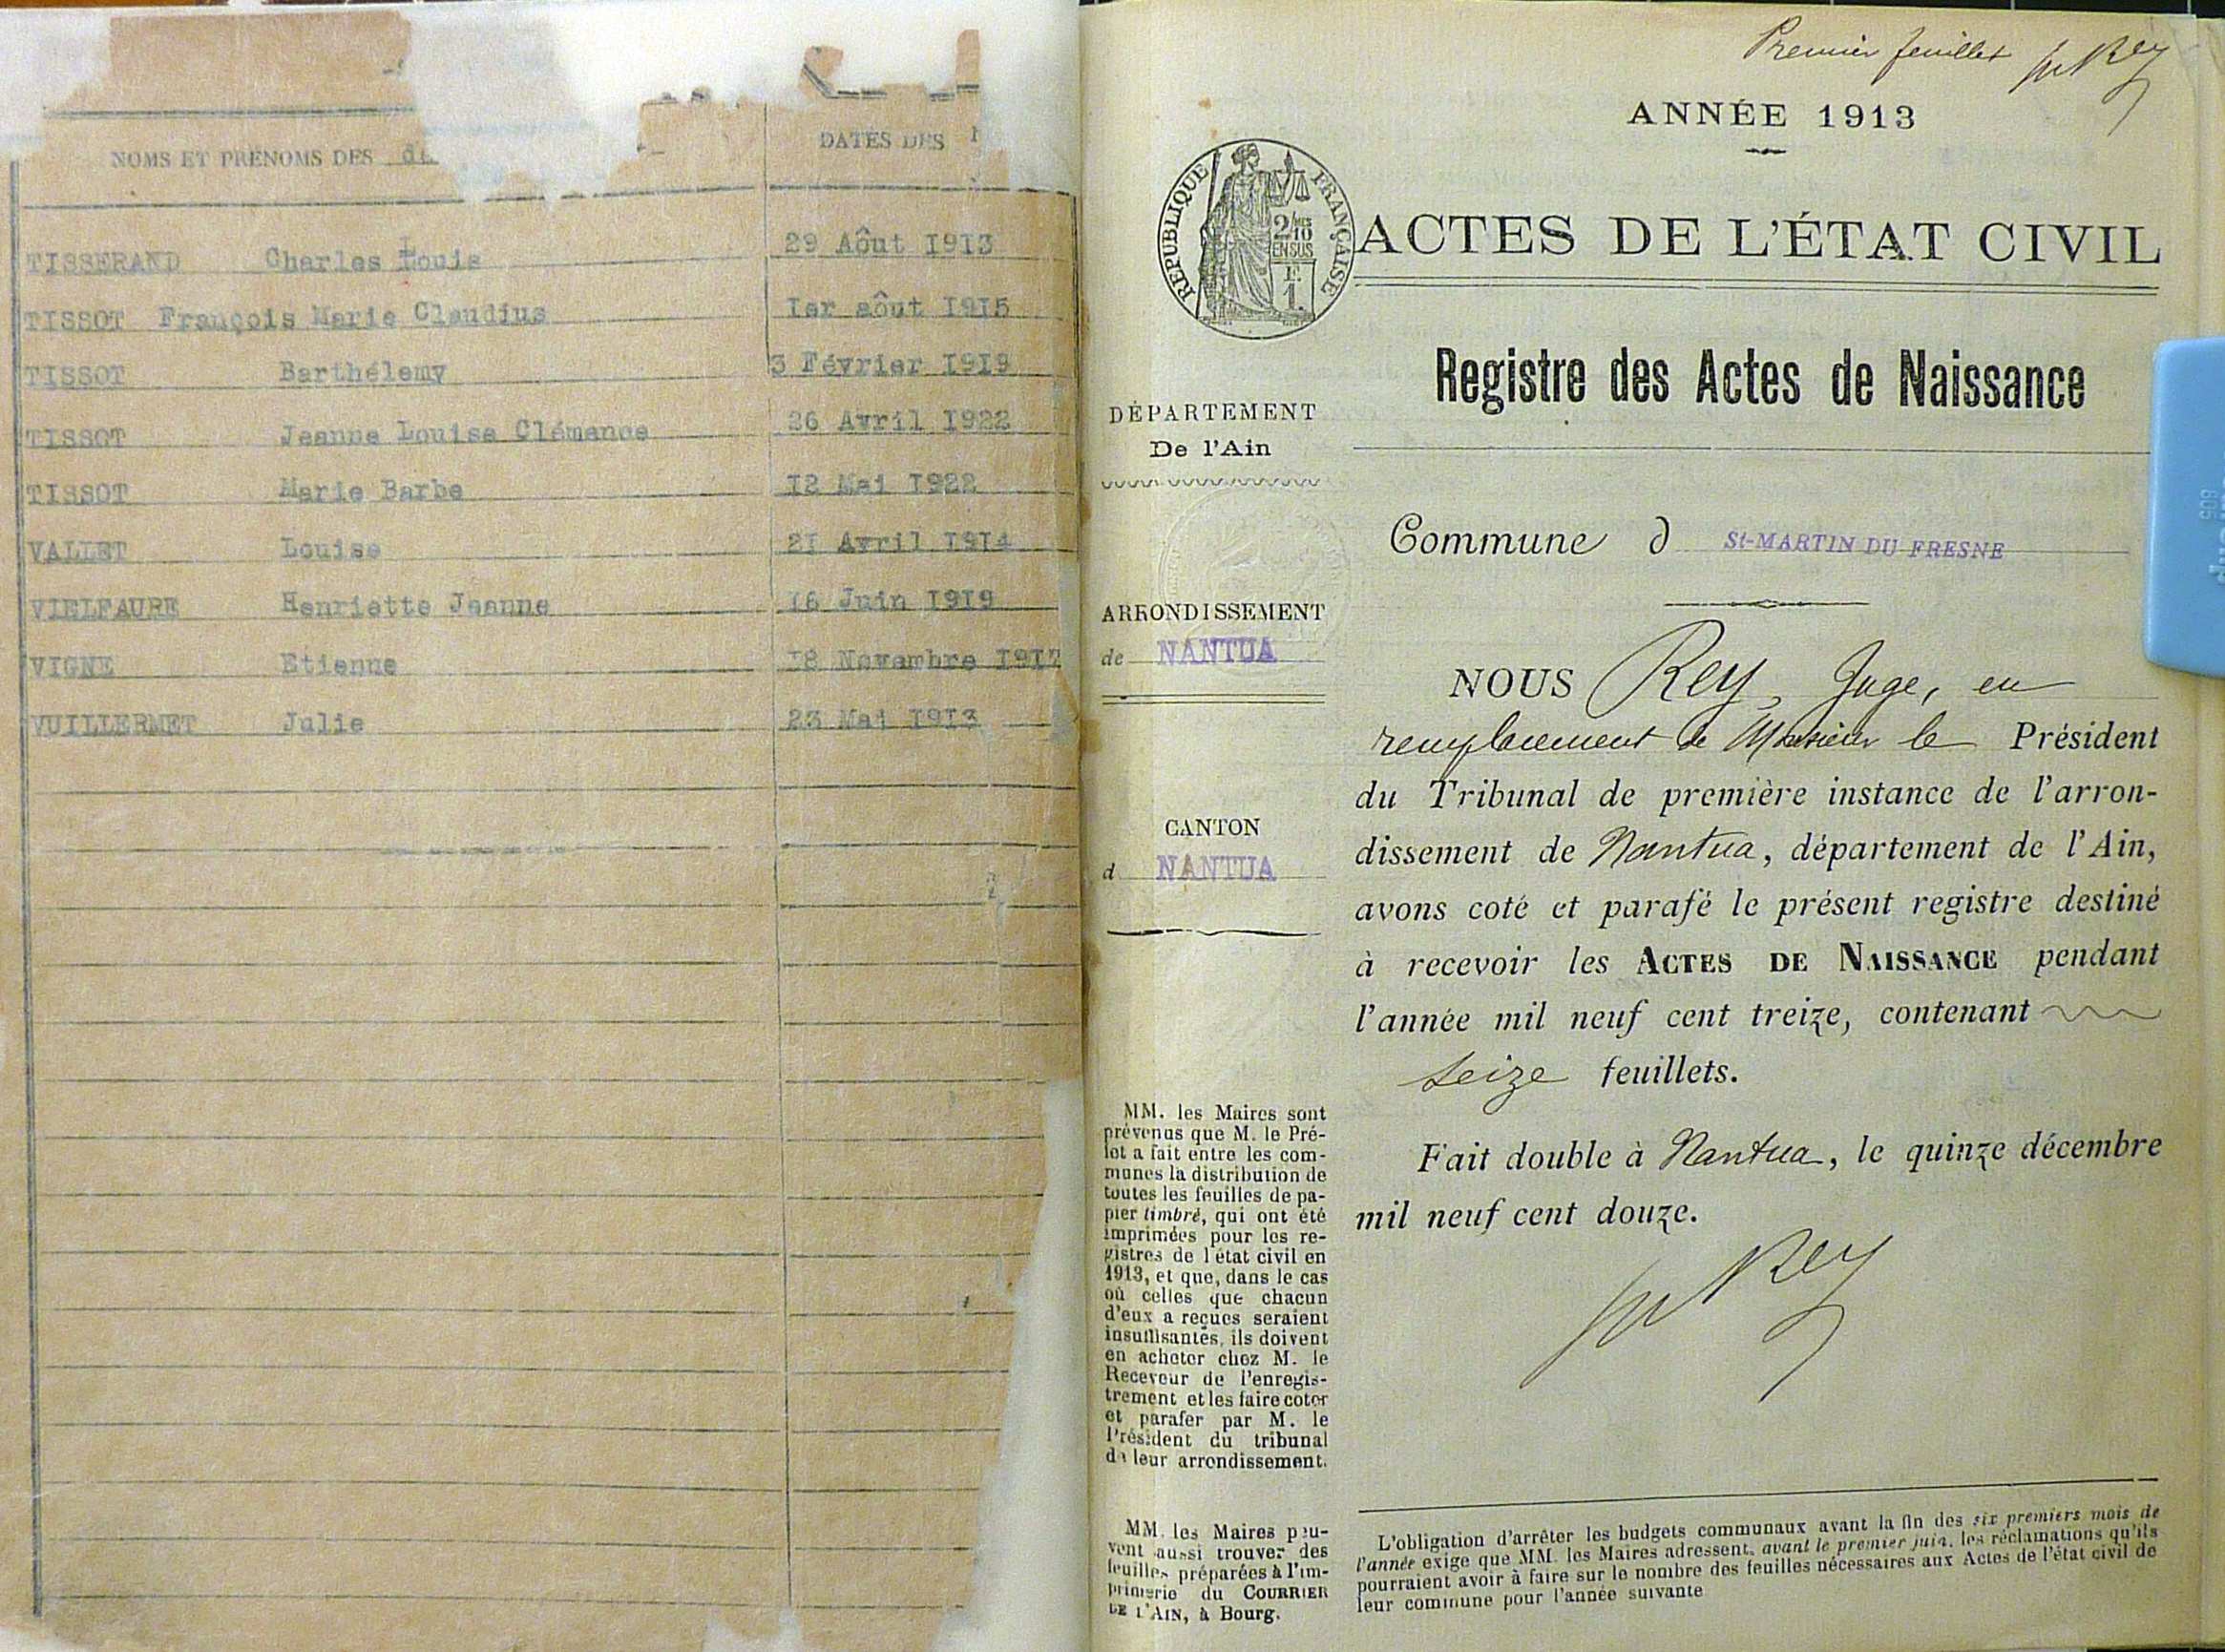 NOMS ET PRÉNOMS DES
DATES DES
TISSERAND Charles Louis 29 Aôut 1913
TISSOT François Marie Claudius 1er aôut 1915
TISSOT Barthélemy 3 Février 1919
TISSOT Jeanne Louise Clémence 26 Avril 1922
TISSOT Marie Barbe 12 Mai 1922
VALLET Louise 21 Avril 1914
VIELFAURE Henriette Jeanne 16 Juin 1919
VIGNE Etienne 18 Novembre 1917
VUILLERMET Julie 23 Mai 1913
Premier feuillet Rey
ANNÉE 1913
RÉPUBLIQUE FRANÇAISE
2/10 EN SUS
1
ACTES DE L'ÉTAT CIVIL
Registre des Actes de Naissance
DÉPARTEMENT
De l'Ain
Commune d St-MARTIN DU FRESNE
ARRONDISSEMENT
de NANTUA
CANTON
d NANTUA
NOUS Rey, Juge, en
remplacement de Monsieur le Président
du Tribunal de première instance de l'arron-
dissement de Nantua, département de l'Ain,
avons coté et parafé le présent registre destiné
à recevoir les ACTES DE NAISSANCE pendant
l'année mil neuf cent treize, contenant
seize feuillets.
Fait double à Nantua, le quinze décembre
mil neuf cent douze.
Rey
MM. les Maires sont
prévenus que M. le Pré-
fet a fait entre les com-
munes la distribution de
toutes les feuilles de pa-
pier timbré, qui ont été
imprimées pour les re-
gistres de l'état civil en
1913, et que, dans le cas
où celles que chacun
d'eux a reçues seraient
insuffisantes, ils doivent
en acheter chez M. le
Receveur de l'enregis-
trement et les faire coter
et parafer par M. le
Président du tribunal
de leur arrondissement.
MM. les Maires peu-
vent aussi trouver des
feuilles préparées à l'im-
primerie du COURRIER
DE L'AIN, à Bourg.
L'obligation d'arrêter les budgets communaux avant la fin des six premiers mois de
l'année exige que MM. les Maires adressent, avant le premier juin, les réclamations qu'ils
pourraient avoir à faire sur le nombre des feuilles nécessaires aux Actes de l'état civil de
leur commune pour l'année suivante